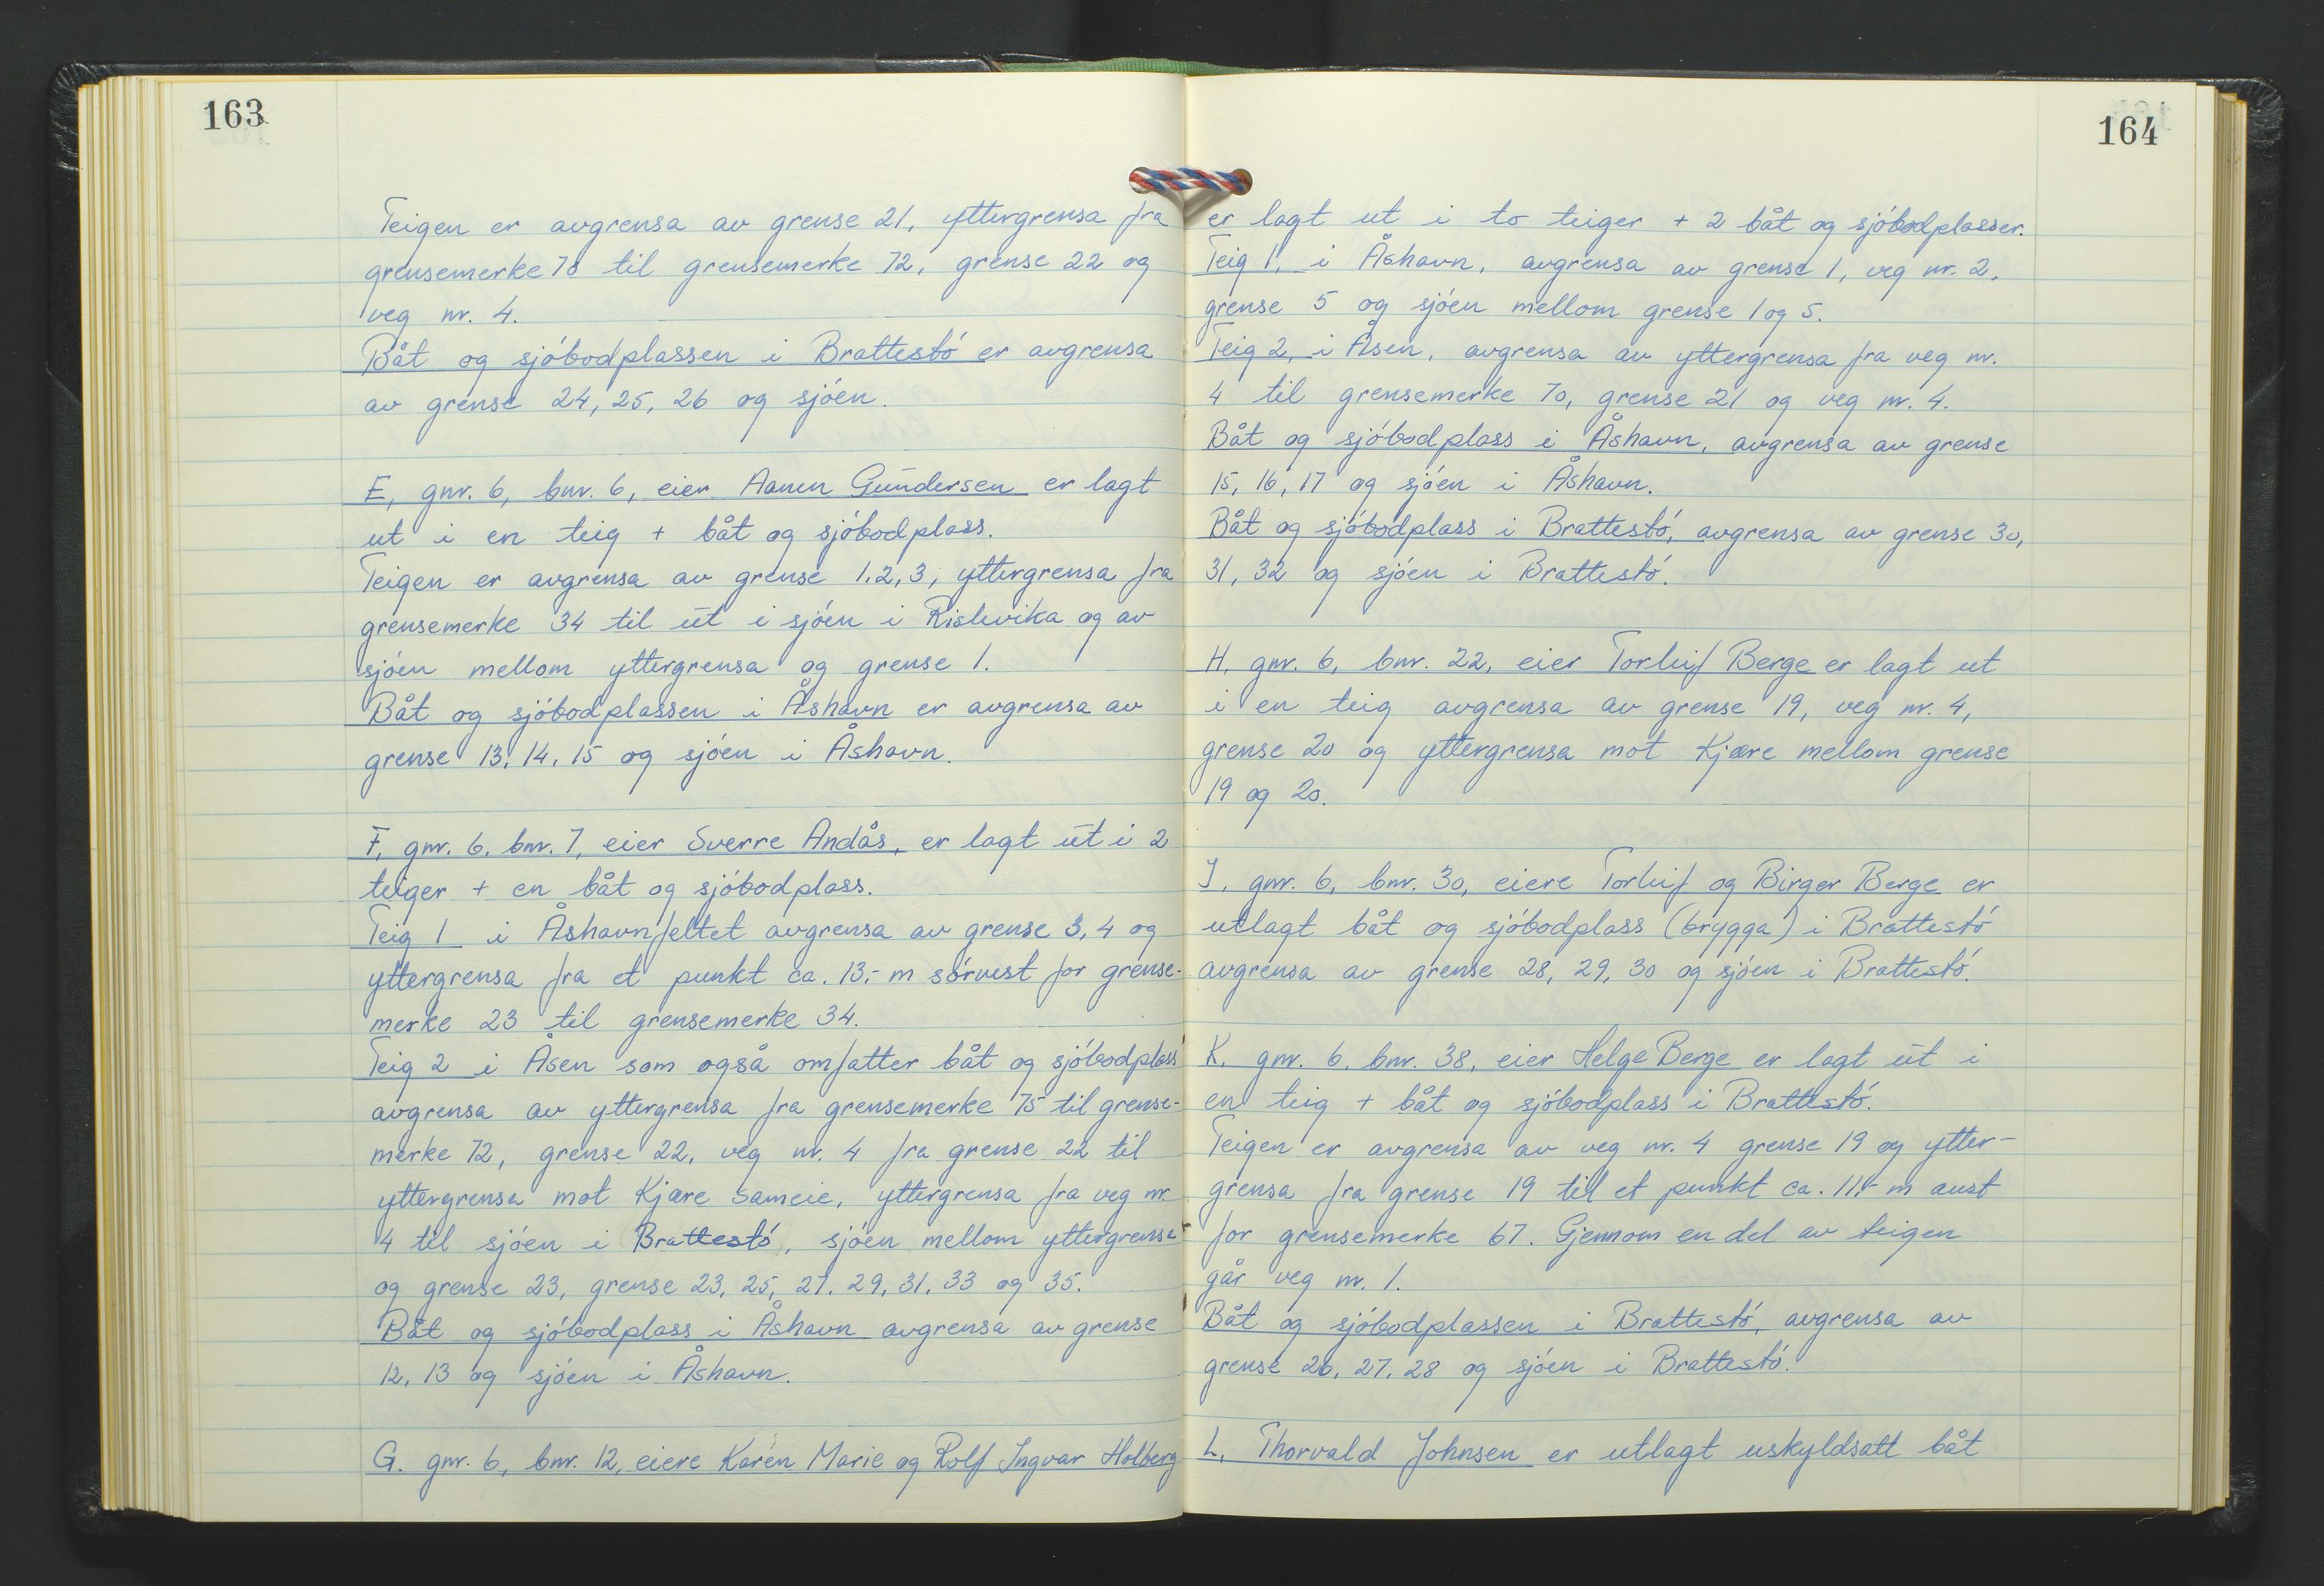 163
Teigen er avgrensa av grense 21, yttergrensa fra
grensemerke 70 til grensemerke 72, grense 22 og
veg nr. 4.
Båt og sjóbodplassen i Brattestó er avgrensa
av grense 24, 25, 26 og sjóen.
E, gnr. 6, bnr. 6, eier Aanen Gundersen er lagt
ut i en teig + båt og sjóbodplass.
Teigen er avgrensa av grense 1, 2, 3, yttergrensa fra
grensemerke 34 til ut i sjóen i Rislevika og av
sjóen mellom yttergrensa og grense 1.
Båt og sjóbodplassen i Åshavn er avgrensa av
grense 13, 14, 15 og sjóen i Åshavn.
F, gnr. 6, bnr. 7, eier Sverre Andås, er lagt ut i 2
teiger + en båt og sjóbodplass.
Teig 1 i Åshavnfeltet avgrensa av grense 3, 4 og
yttergrensa fra et punkt ca. 13,- m sórvest for grense-
merke 23 til grensemerke 34.
Teig 2 i Åsen som også omfatter båt og sjóbodplass
avgrensa av yttergrensa fra grensemerke 75 til grense-
merke 72, grense 22, veg nr. 4 fra grense 22 til
yttergrensa mot Kjære Sameie, yttergrensa fra veg nr.
4 til sjóen i Brattestó, sjóen mellom yttergrensa
og grense 23, grense 23, 25, 27, 29, 31, 33 og 35.
Båt og sjóbodplass i Åshavn avgrensa av grense
12, 13 og sjóen i Åshavn.
G. gnr. 6, bnr. 12, eiere Karen Marie og Rolf Ingvar Holberg
164
er lagt ut i to teiger + 2 båt og sjóbodplasser.
Teig 1, i Åshavn, avgrensa av grense 1, veg nr. 2,
grense 5 og sjóen mellom grense 1 og 5.
Teig 2, i Åsen, avgrensa av yttergrensa fra veg nr.
4 til grensemerke 70, grense 21 og veg nr. 4.
Båt og sjóbodplass i Åshavn, avgrensa av grense
15, 16, 17 og sjóen i Åshavn.
Båt og sjóbodplass i Brattestó, avgrensa av grense 30,
31, 32 og sjóen i Brattestó.
H, gnr. 6, bnr. 22, eier Torleif Berge er lagt ut
i en teig avgrensa av grense 19, veg nr. 4,
grense 20 og yttergrensa mot Kjære mellom grense
19 og 20.
J, gnr. 6, bnr. 30, eiere Torleif og Birger Berge er
utlagt båt og sjóbodplass (brygga) i Brattestó
avgrensa av grense 28, 29, 30 og sjóen i Brattestó.
K, gnr. 6, bnr. 38, eier Helge Berge er lagt ut i
en teig + båt og sjóbodplass i Brattestó.
Teigen er avgrensa av veg nr. 4 grense 19 og ytter-
grensa fra grense 19 til et punkt ca. 11,- m aust
for grensemerke 67. Gjennom en del av teigen
går veg nr. 1.
Båt og sjóbodplassen i Brattestó, avgrensa av
grense 26, 27, 28 og sjóen i Brattestó.
L, Thorvald Johnsen er utlagt uskyldsatt båt